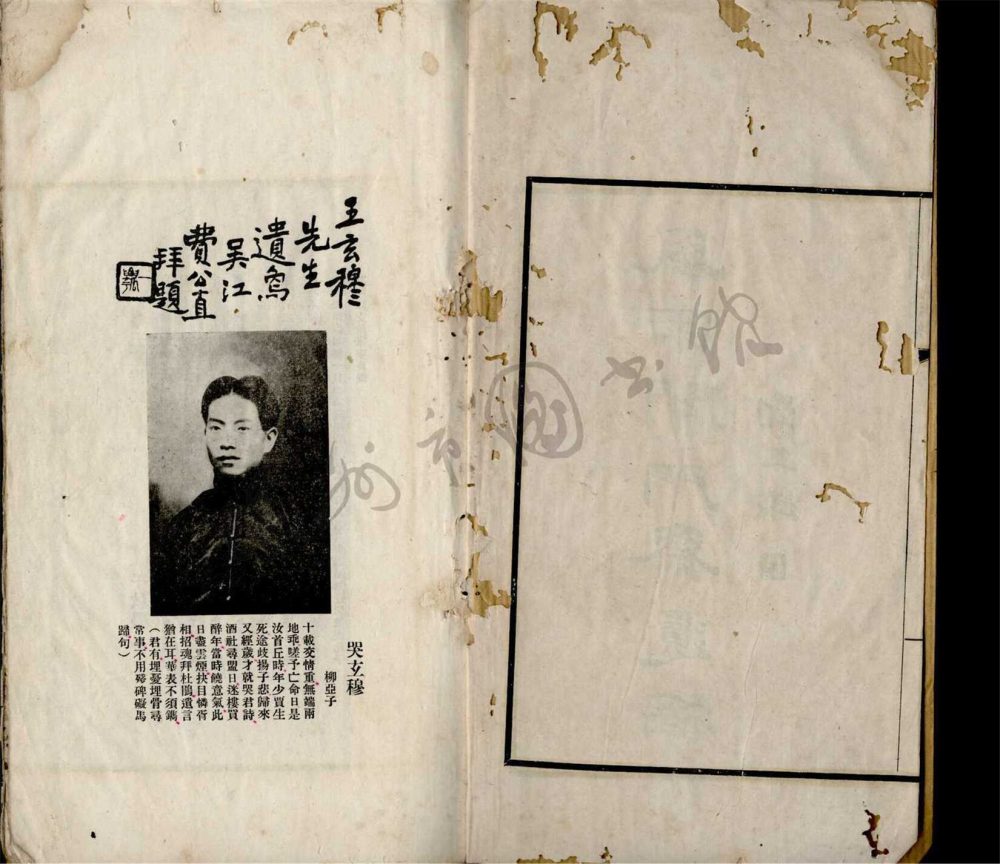 王玄穆
先生
遺
吳江
費公直
拜題
哭玄穆
柳亞子
十載交情重無端兩
地乖嗟予亡命日是
汝首丘時年少賈生
死途歧揚子悲歸來
又經歲才就哭君詩
酒社尋盟日迷樓買
醉年當時饒意氣此
日盡雲煙抉目憐胥
相招魂拜杜鵑遺言
猶在耳華表不須鐫
（君有埋憂埋骨尋
常事不用殘碑礙馬
蹄句）